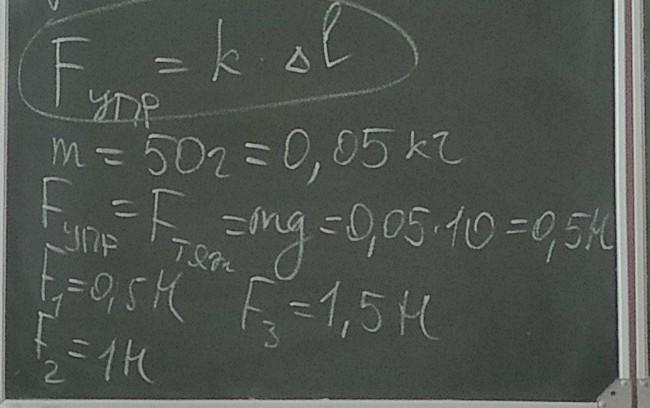 Fупр = k · Δl
m = 50г = 0,05 кг
Fупр = Fтяж = mg = 0,05·10 = 0,5Н
F1 = 0,5Н F3 = 1,5Н
F2 = 1Н